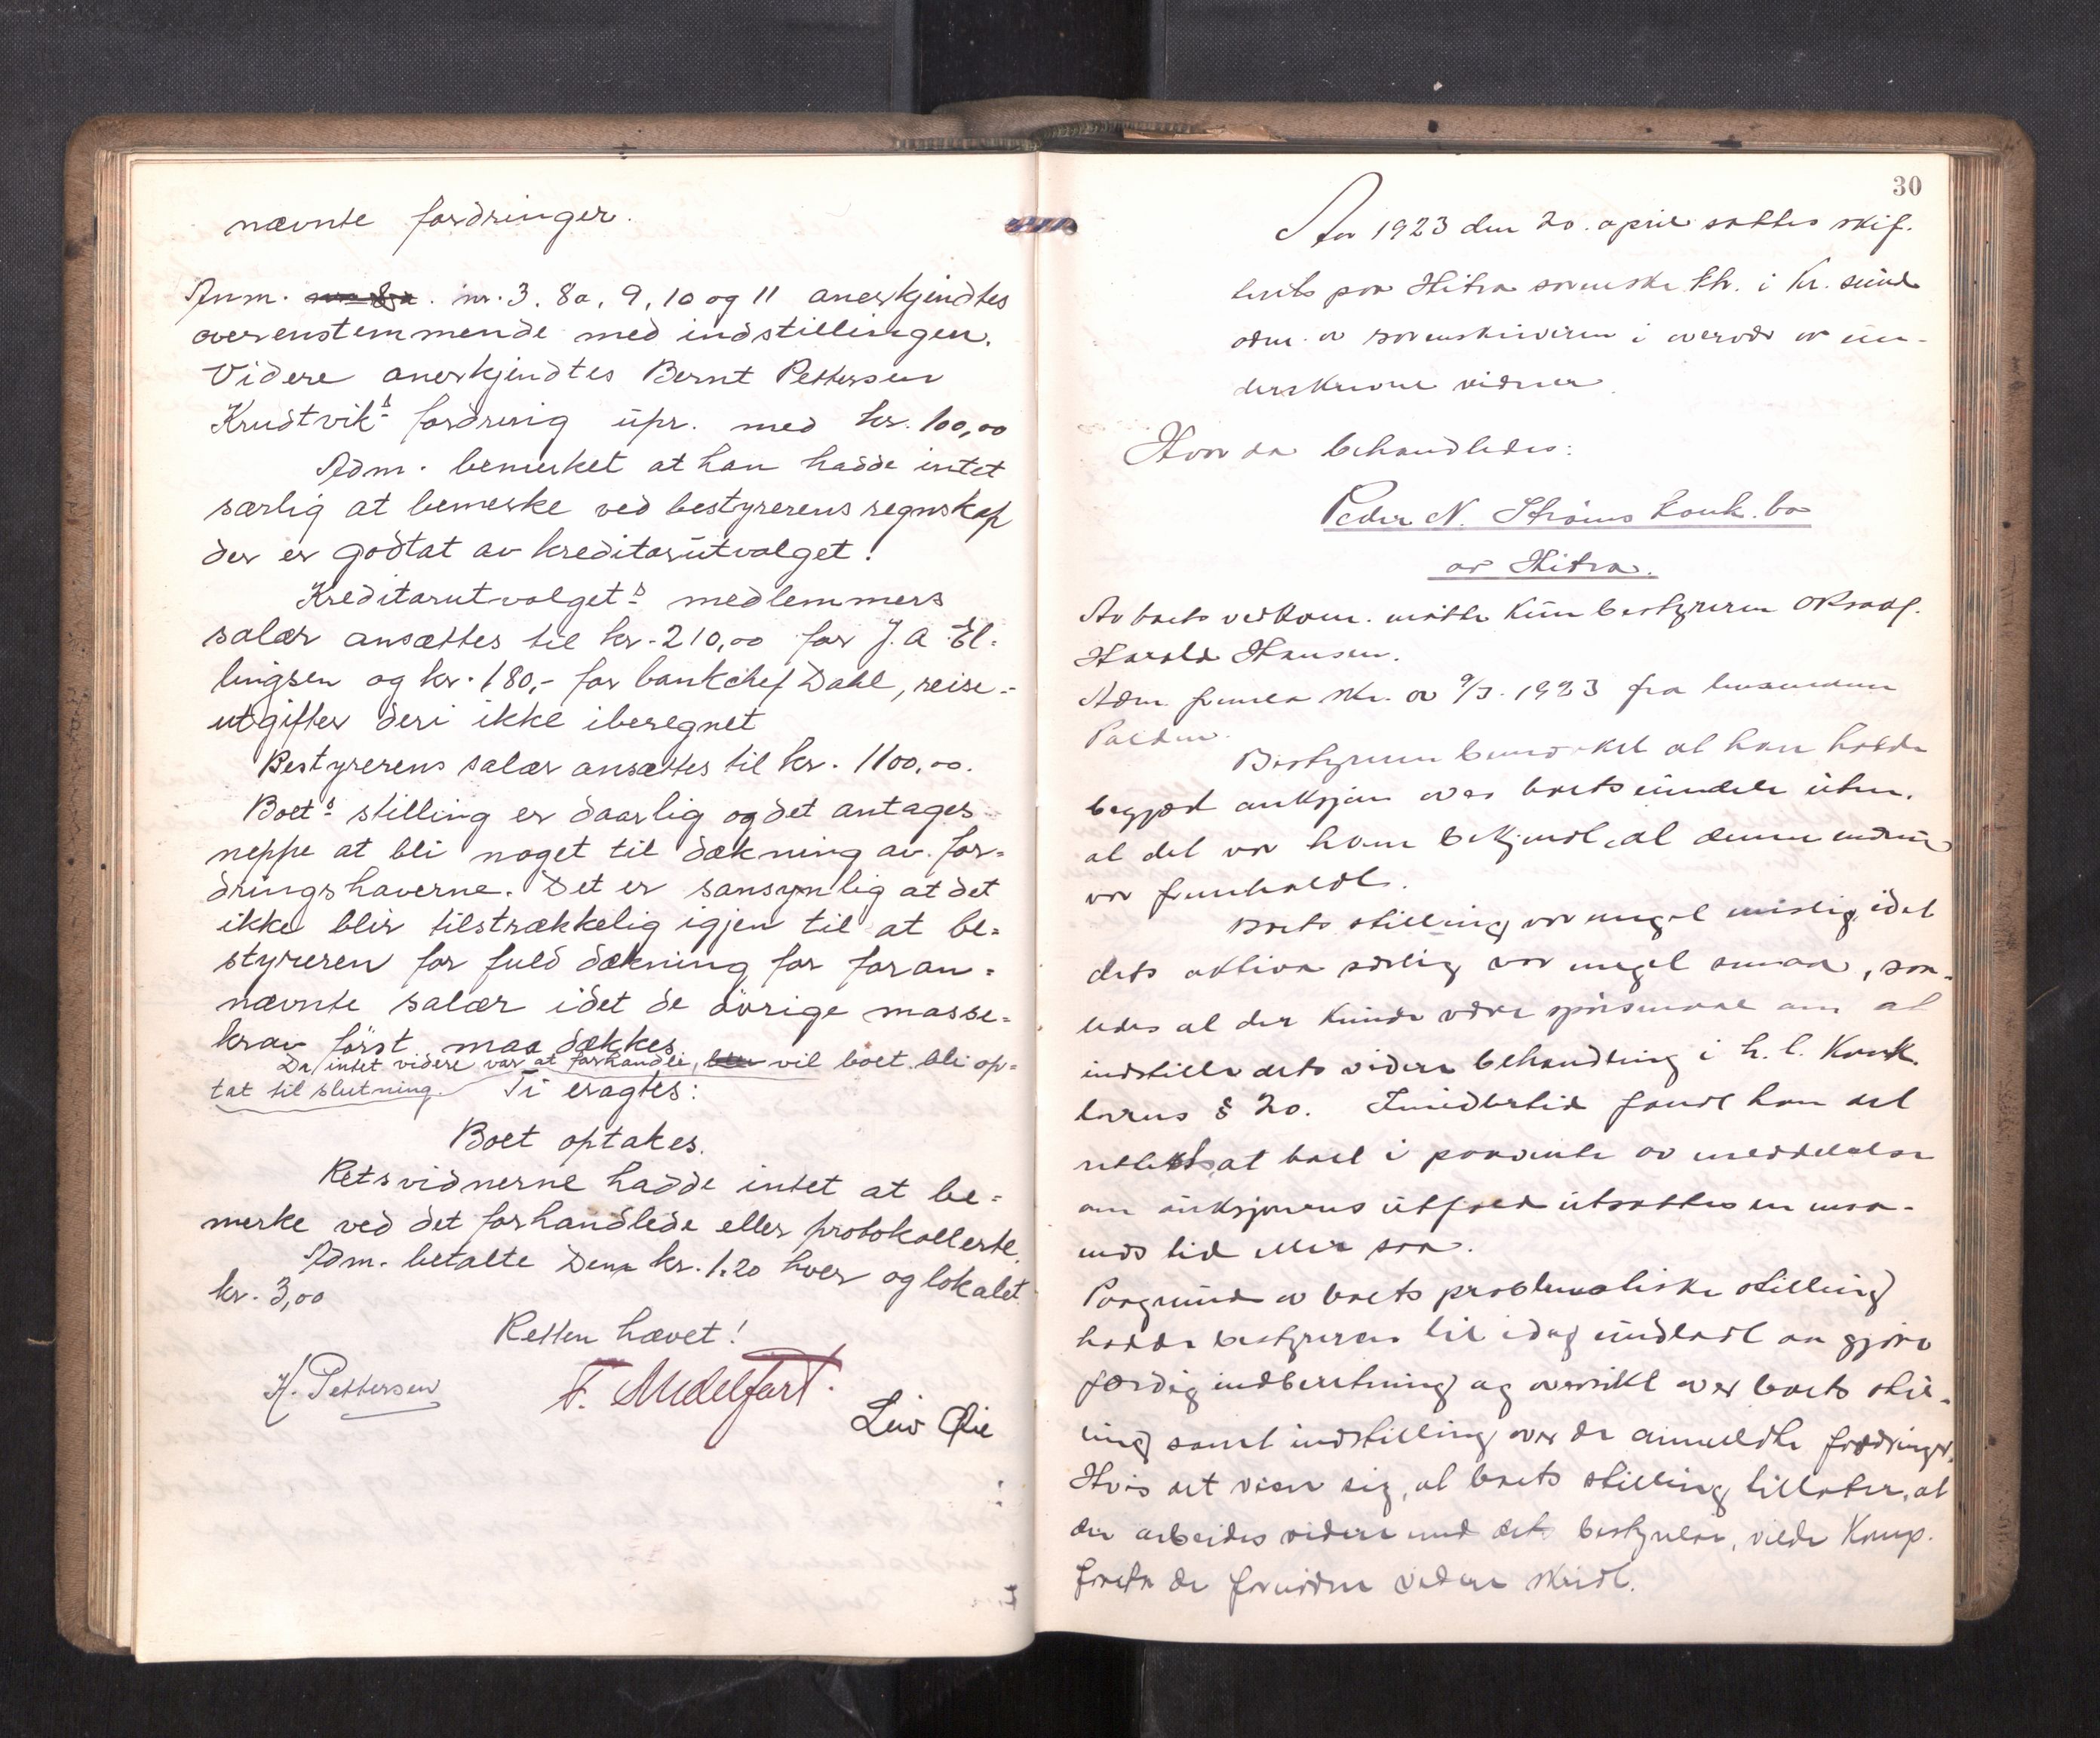 nævnte fordringer.
Anm. nr. 3, 8a, 9, 10 og 11 anerkjendtes
overenstemmende med indstillingen.
Videre anerkjendtes Bernt Pettersen
Krudtvik's fordring upr. med kr. 100,00
Adm. bemerket at han hadde intet
særlig at bemerke ved bestyrerens regnskap
der er godtat av kreditorutvalget.
Kreditorutvalget's medlemmers
salær ansættes til kr. 210,00 for J. A. El-
lingsen og kr. 180,- for bankchef Dahl, reise-
utgifter deri ikke iberegnet
Bestyrerens salær ansættes til kr. 1100,00.
Boet's stilling er daarlig og det antages
neppe at bli noget til dækning av for-
dringshaverne. Det er sansynlig at det
ikke blir tilstrækkelig igjen til at be-
styreren for fuld dækning for foran-
nævnte salær idet de övrige masse-
krav först maa dækkes
Da intet videre var at forhandle, vil boet bli op-
tat til slutning. Ti eragtes:
Boet optakes.
Retsvidnerne hadde intet at be-
merke ved det forhandlede eller protokollerte.
Adm. betalte Dem kr. 1.20 hver og lokalet
kr. 3,00
Retten hævet!
H. Pettersen F. Midelfart. Leiv Øie
30
Aar 1923 den 20. april sattes skif-
terets paa Hitra sorenskr. ktr. i Kr. sund
adm. av sorenskriveren i overvær av un-
derskrevne vidner.
Hvor da behandledes:
Peder N. Ströms konk. bo
av Hitra.
Av boets vedkom. mötte kun bestyreren o.r.sakf.
Harald Hansen.
Adm. fremla skr. av 9/3. 1923 fra lensmanden
Bestyreren bemerket at han hadde
begjært auksjon over boets eiendele uten.
at det var ham bekjendt, at denne endnu
var fremholdt.
Boets stilling var meget mislig, idet
dets aktiva særlig var meget smaa, saa-
ledes at der kunde være spörsmaal om at
indstille dets videre behandling i h. t. konk.
lovens § 20. Imidlertid fandt han det
rettest, at boet i paavente av meddelelse
om auksjonens utfald utsattes en maa-
neds tid eller saa.
Paagrund av boets problematiske stilling
hadde bestyreren til idag undlatt aa gjöre
færdig indberetning og oversikt over boets stil-
ling samt indstilling over de anmeldte fordringer.
Hvis det viser sig, at boets stilling tillater, at
der arbeides videre med dets bestyrelse, vilde komp.
foreta de fornödne videre skridt.